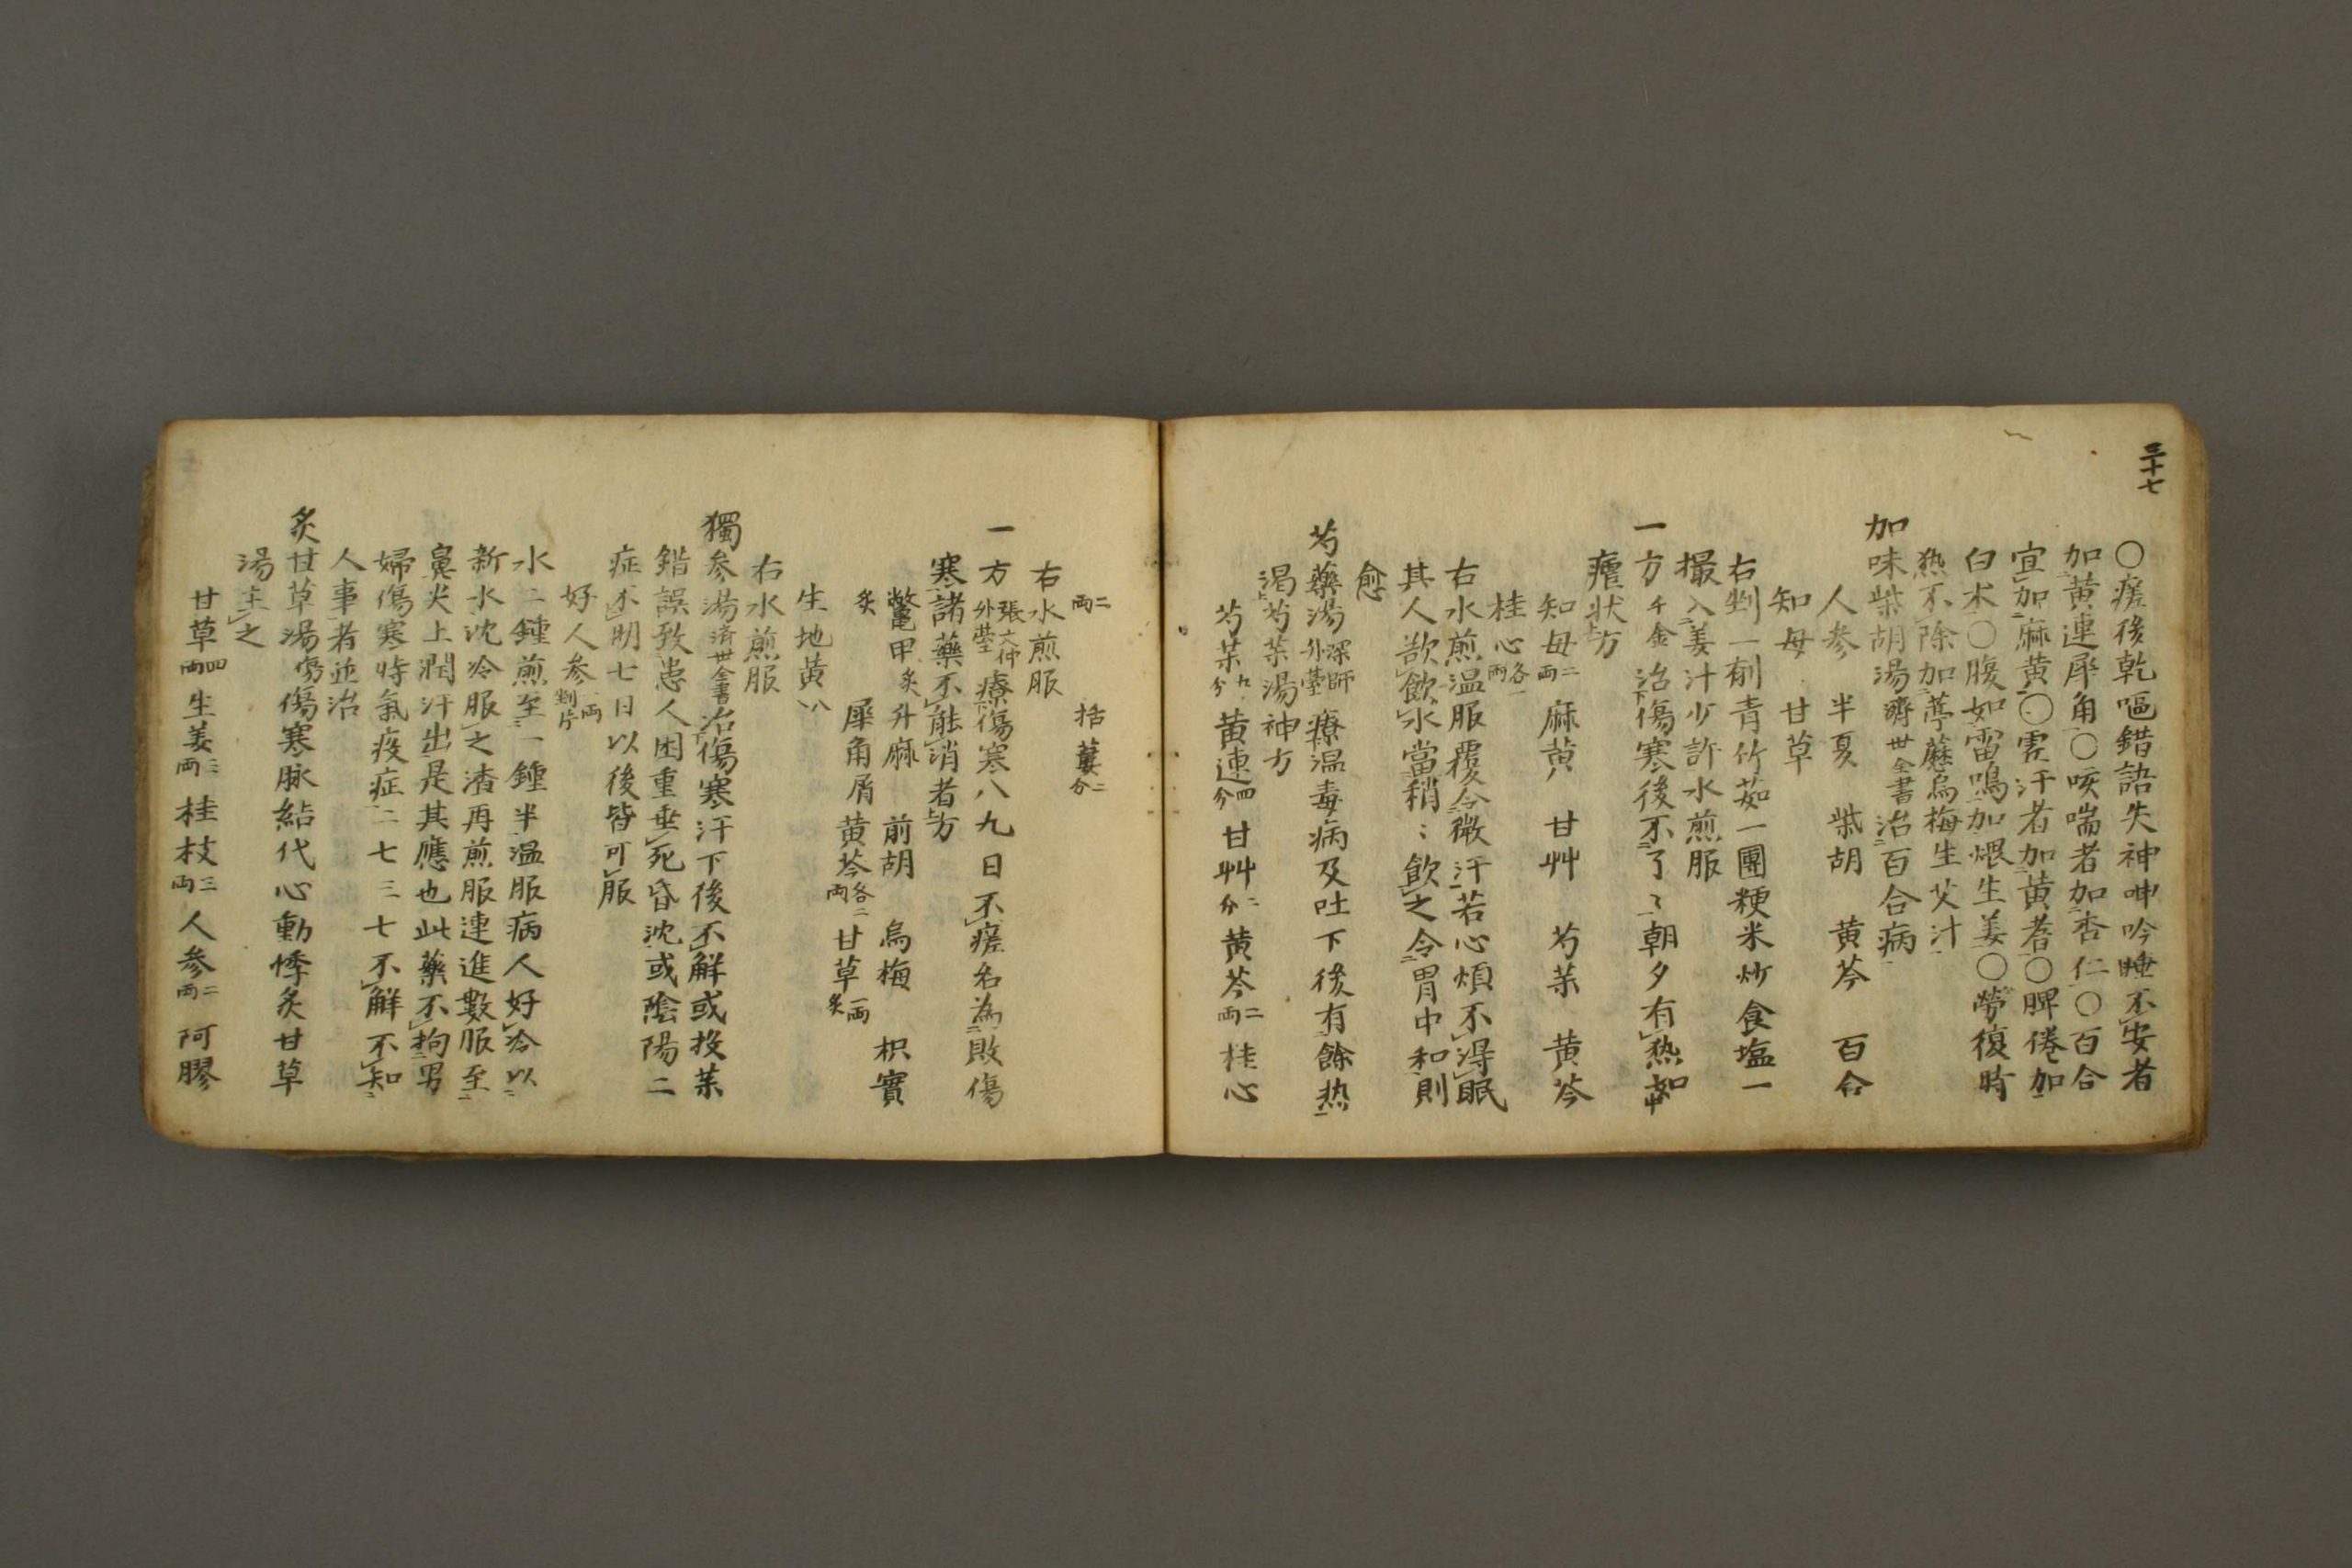 三十七
○瘥後乾嘔錯語失神呻吟睡不安者
加黄連犀角○咳喘者加杏仁○百合
宜加麻黄○虚汗者加黄耆○脾倦加
白朮○腹如雷鳴加煨生姜○勞復時
熱不除加葶藶烏梅生艾汁
加味柴胡湯濟世全書治百合病
人参 半夏 柴胡 黄芩 百合
知母 甘草
右剉一劑青竹茹一團粳米炒食塩一
撮入姜汁少許水煎服
一方千金治傷寒後不了〻朝夕有熱如
瘧状方
知母二両 麻黄 甘艸 芍薬 黄芩
桂心各一両
右水煎温服覆令微汗若心煩不得眠
其人欲飲水當稍〻飲之令胃中和則
愈
芍藥湯深師外臺療温毒病及吐下後有餘热
渇芍薬湯神方
芍薬九分 黄連四分 甘艸二分 黄芩二両 桂心
二両 括蔞二分
右水煎服
一方張文仲外臺療傷寒八九日不瘥名為敗傷
寒諸藥不能消者方
鱉甲炙 升麻 前胡 烏梅 枳實
炙 犀角屑 黄芩各二両 甘草一両炙
生地黄八
右水煎服
獨参湯済世全書治傷寒汗下後不解或投薬
錯誤致患人困重垂死昏沈或陰陽二
症不明七日以後皆可服
好人参一両剉片
水二鍾煎至一鍾半温服病人好冷以
新水沈冷服之渣再煎服連進數服至
鼻尖上潤汗出是其應也此藥不拘男
婦傷寒時氣疫症二七三七不解不知
人事者並治
炙甘草湯傷寒脉結代心動悸炙甘草
湯主之
甘草四両 生姜三両 桂枝三両 人参二両 阿膠